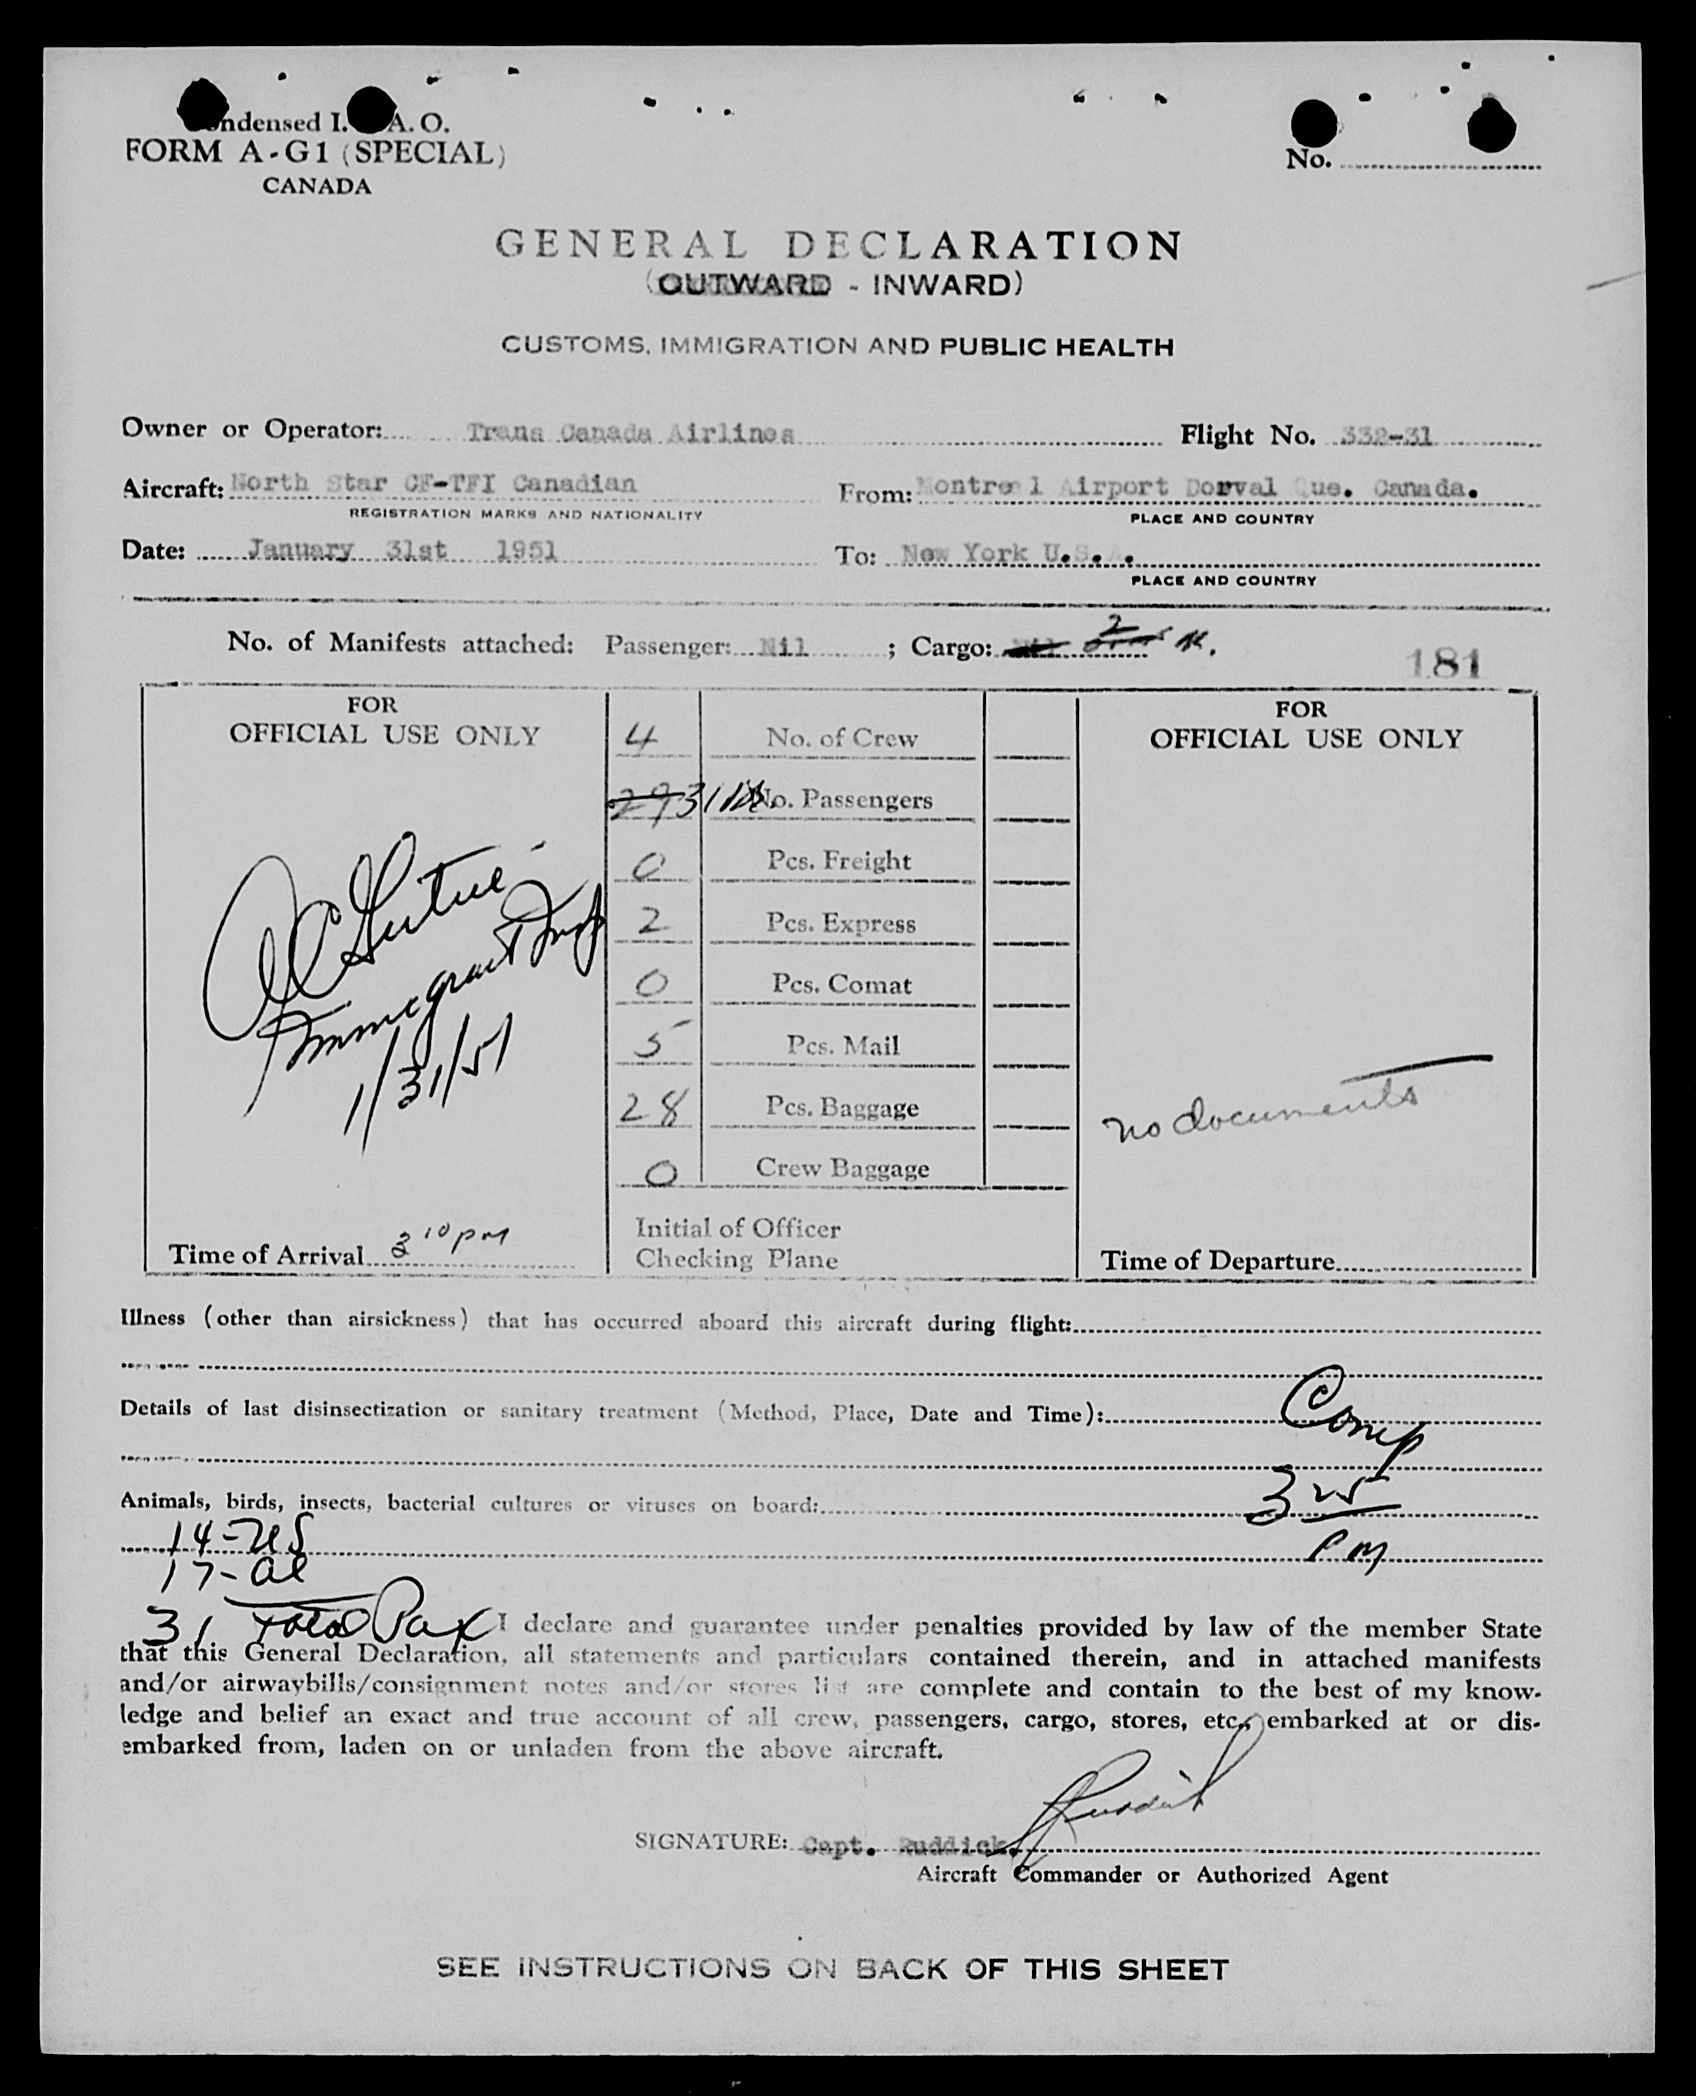 Condensed I. A. O.
FORM A-G1 (SPECIAL)
CANADA
No.
GENERAL DECLARATION
(OUTWARD - INWARD)
CUSTOMS, IMMIGRATION AND PUBLIC HEALTH
Owner or Operator: Trans Canada Airlines Flight No. 332-31
Aircraft: North Star CF-TFI Canadian From: Montreal Airport Dorval Que. Canada.
REGISTRATION MARKS AND NATIONALITY PLACE AND COUNTRY
Date: January 31st 1951 To: New York U.S.A.
PLACE AND COUNTRY
No. of Manifests attached: Passenger: Nil ; Cargo: Nil 2
181
FOR
OFFICIAL USE ONLY
Immigrant Insp
1/31/51
Time of Arrival 3 10 pm
4 No. of Crew
29 31 No. Passengers
0 Pcs. Freight
2 Pcs. Express
0 Pcs. Comat
5 Pcs. Mail
28 Pcs. Baggage
0 Crew Baggage
Initial of Officer
Checking Plane
FOR
OFFICIAL USE ONLY
no documents
Time of Departure
Illness (other than airsickness) that has occurred aboard this aircraft during flight:
Details of last disinsectization or sanitary treatment (Method, Place, Date and Time):
Comp
Animals, birds, insects, bacterial cultures or viruses on board:
3 25
PM
14-US
17-al
31 total Pax
I declare and guarantee under penalties provided by law of the member State
that this General Declaration, all statements and particulars contained therein, and in attached manifests
and/or airwaybills/consignment notes and/or stores list are complete and contain to the best of my know-
ledge and belief an exact and true account of all crew, passengers, cargo, stores, etc., embarked at or dis-
embarked from, laden on or unladen from the above aircraft.
Ruddick
SIGNATURE: Capt. Ruddick.
Aircraft Commander or Authorized Agent
SEE INSTRUCTIONS ON BACK OF THIS SHEET